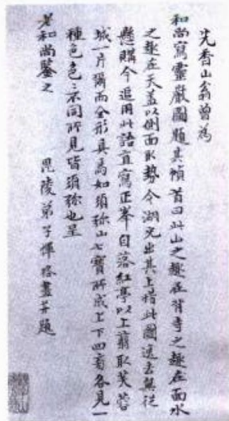 先香山翁曾為
和尚寫靈巖圖題其幀首曰此山之趣在背寺之趣在面水
之趣在天蓋以側面取勢令湖光出其上惜此圖遠去無從
懸購今追用此語直寫正峯自落紅亭以上翦取芙蓉
城一片獨而全形具焉如須弥山七寶所成上下四旁各見一
種色色不同所見皆須弥也呈
老和尚鑒之
毘陵弟子惲格畫并題